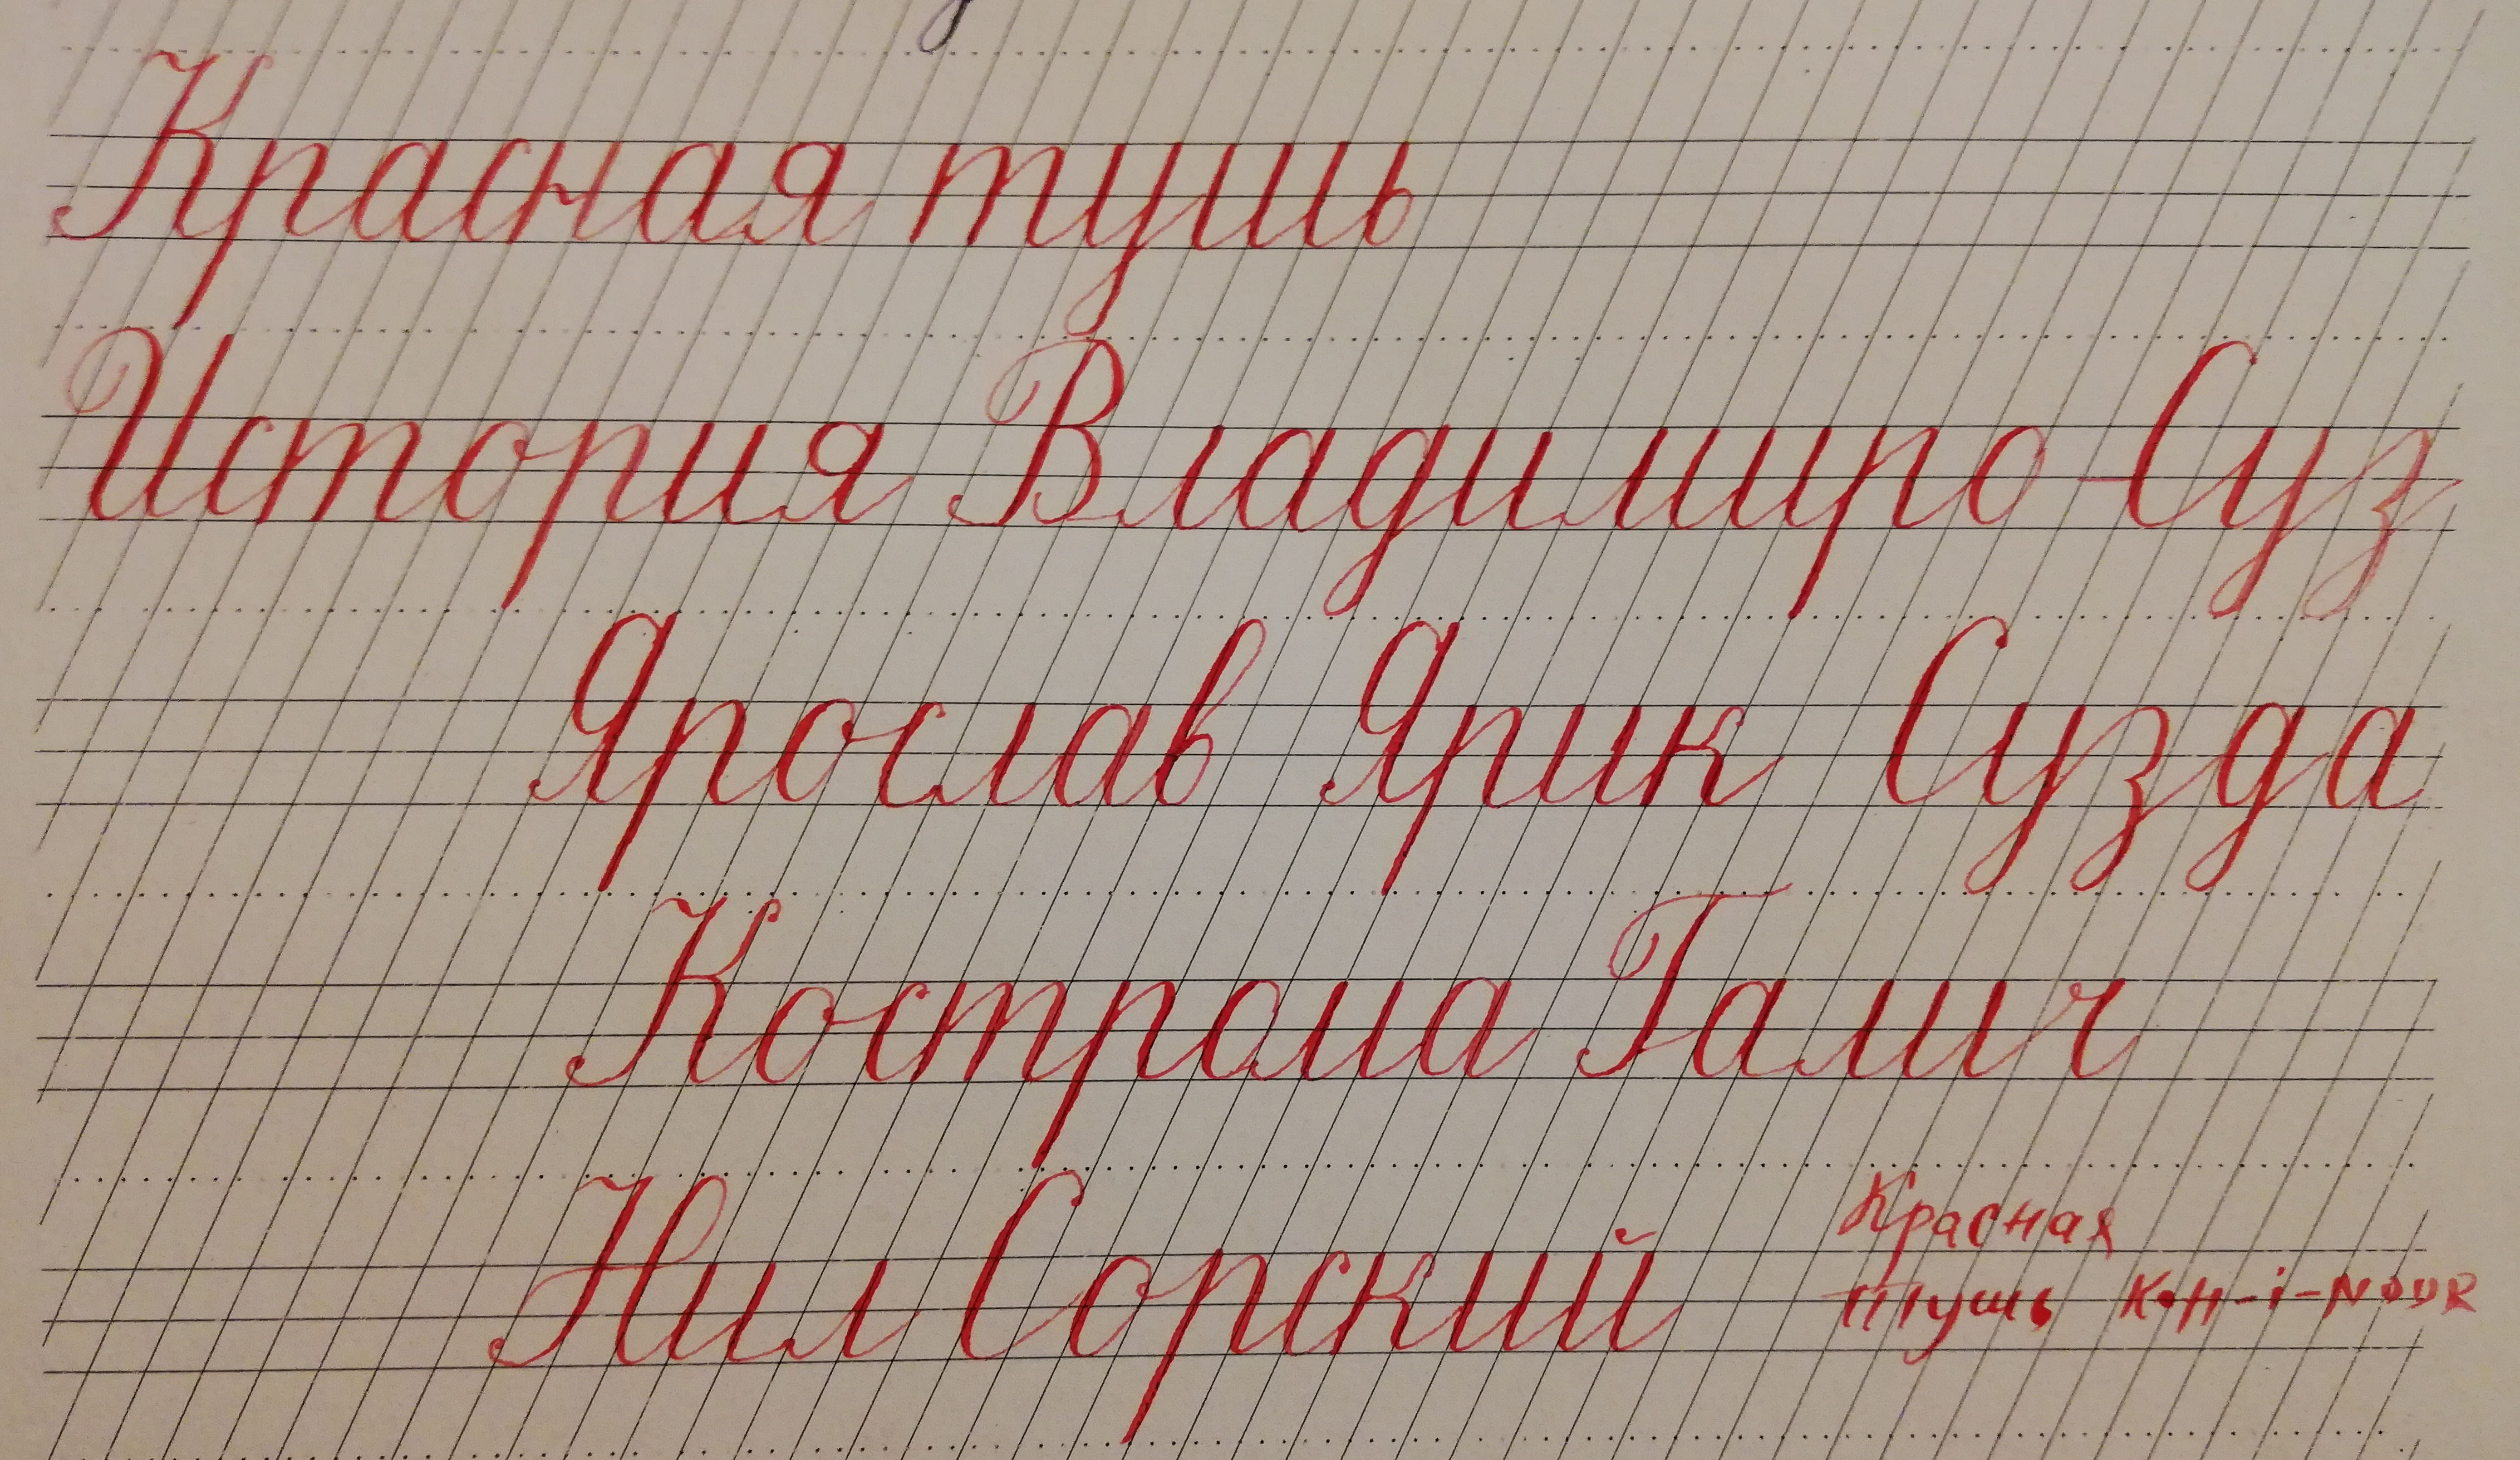 Красная тушь
История Владимиро-Суз
Ярослав Ярик Сузда
Кострома Галич
Нил Сорский
Красная
тушь KOH-i-NOUR